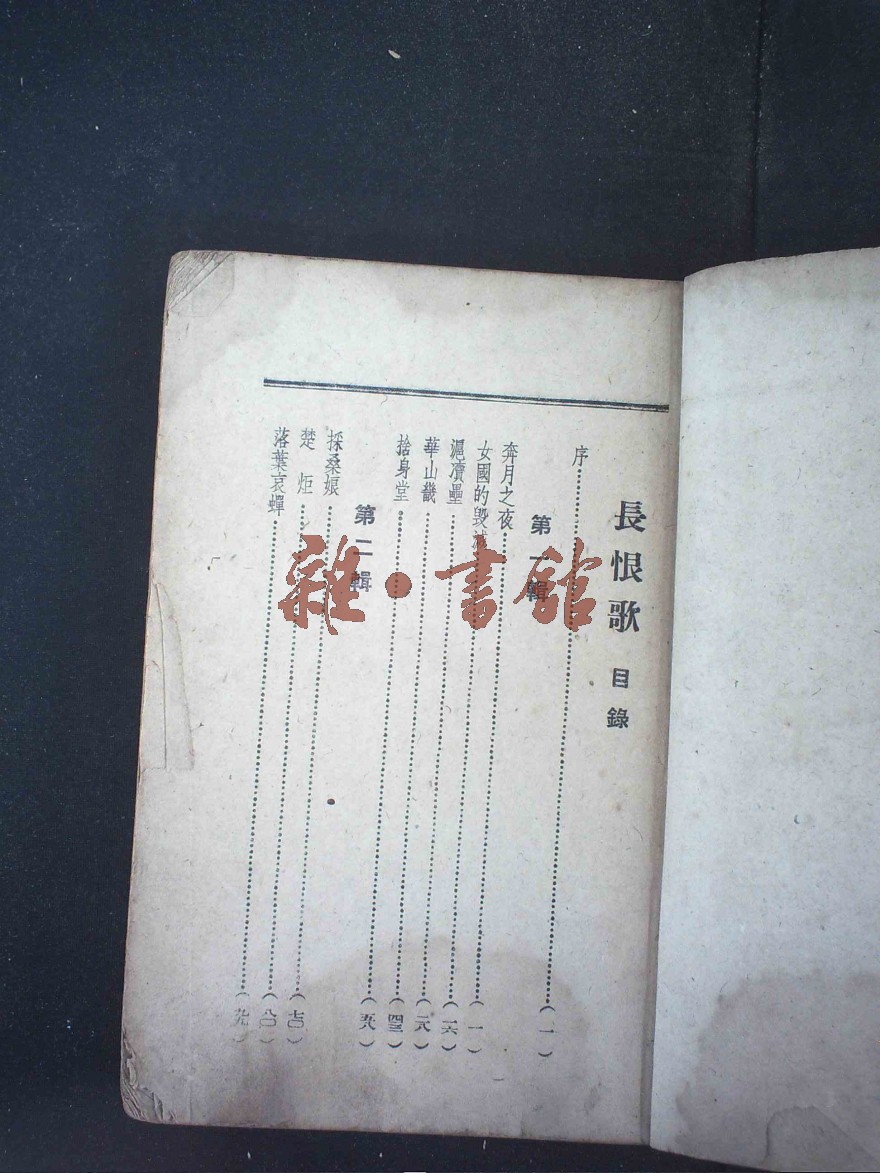 長恨歌 目錄
序……(一)
第一輯
奔月之夜……(一)
女國的毀滅……(一六)
滬瀆壘……(二八)
華山畿……(四三)
捨身堂……(五八)
第二輯
採桑娘……(七〇)
楚炬……(八〇)
落葉哀蟬……
雜·書館